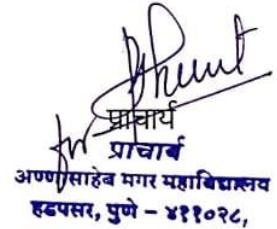 प्राचार्य
for प्राचार्य
अण्णासाहेब मगर महाविद्यालय
हडपसर, पुणे - ४११०२८,